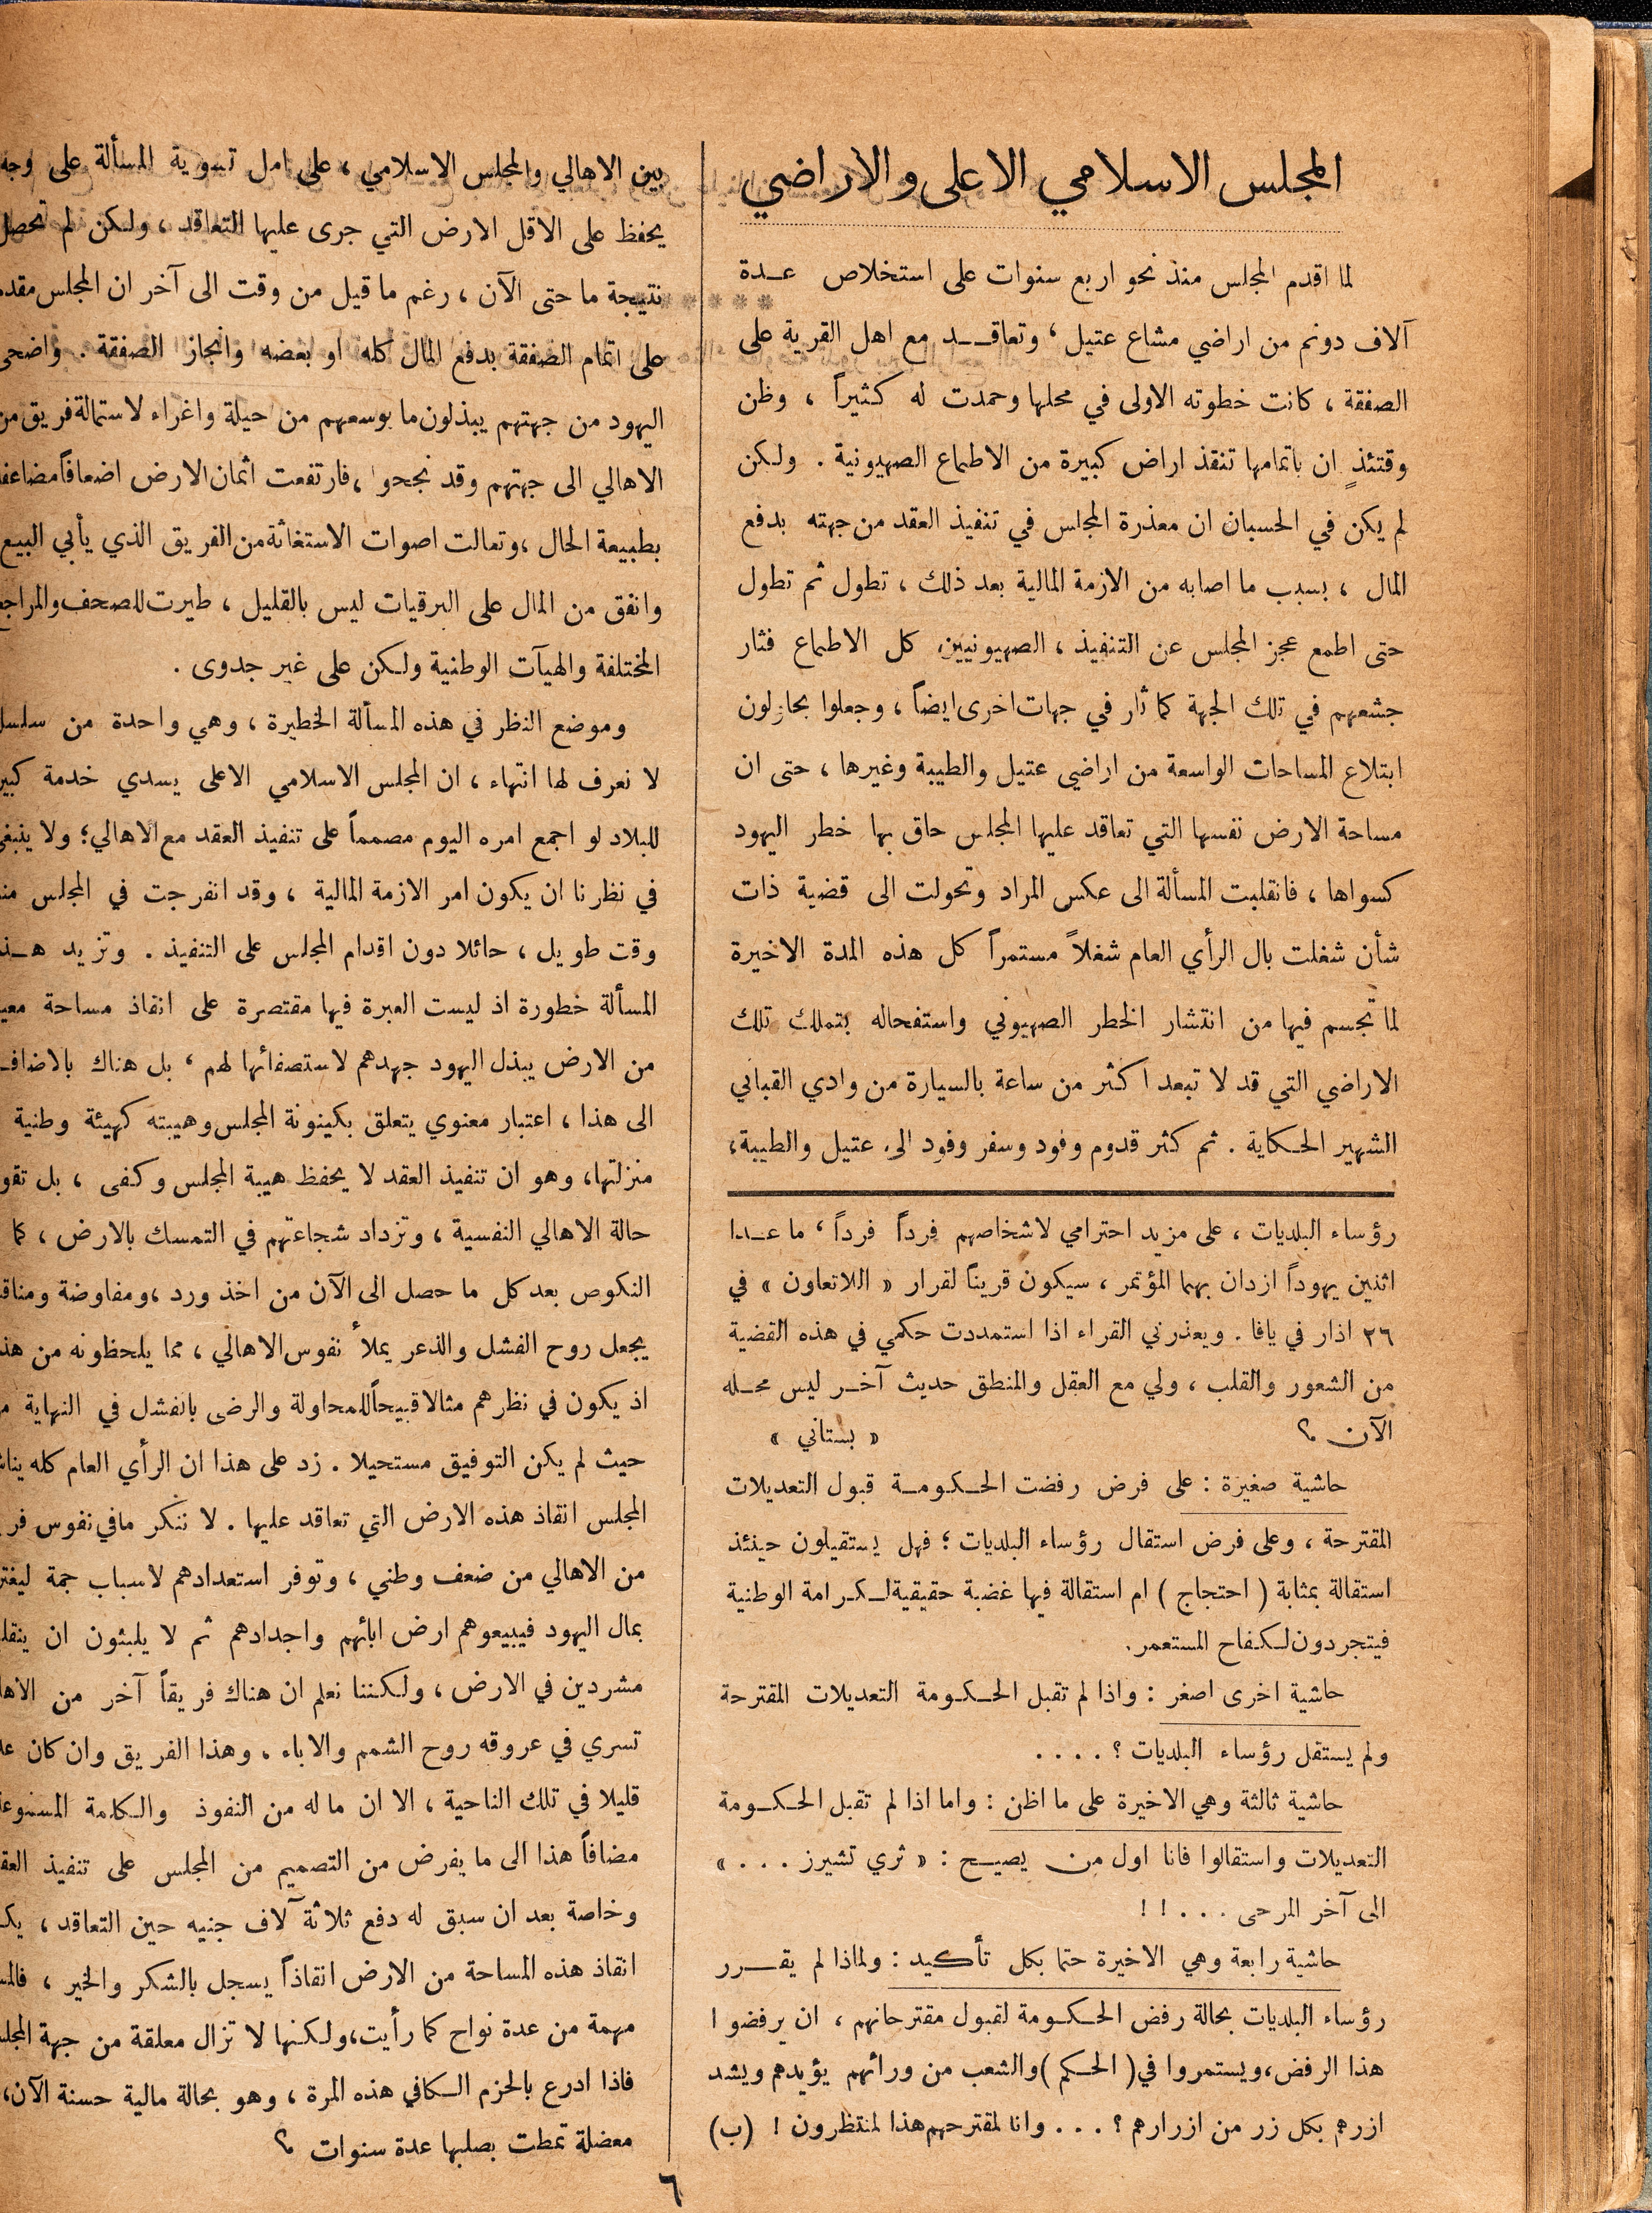 المجلس الاسلامي الاعلى والاراضي
لما اقدم المجلس منذ نحو اربع سنوات على استخلاص عـدة
آلاف دونم من اراضي مشاع عتيل ، وتعاقـد مع اهل القرية على
الصفقة ، كانت خطوته الاولى في محلها وحمدت له كثيراً ، وظن
وقتئذٍ ان باتمامها تنقذ اراض كبيرة من الاطماع الصهيونية . ولكن
لم يكن في الحسبان ان معذرة المجلس في تنفيذ العقد من جهته بدفع
المال ، بسبب ما اصابه من الازمة المالية بعد ذلك ، تطول ثم تطول
حتى اطمع عجز المجلس عن التنفيذ ، الصهيونيين كل الاطماع فثار
جشعهم في تلك الجهة كما ثار في جهات اخرى ايضاً ، وجعلوا يحاولون
ابتلاع المساحات الواسعة من اراضي عتيل والطيبة وغيرها ، حتى ان
مساحة الارض نفسها التي تعاقد عليها المجلس حاق بها خطر اليهود
كسواها ، فانقلبت المسألة الى عكس المراد وتحولت الى قضية ذات
شأن شغلت بال الرأي العام شغلاً مستمراً كل هذه المدة الاخيرة
لما تجسم فيها من انتشار الخطر الصهيوني واستفحاله بتملك تلك
الاراضي التي قد لا تبعد اكثر من ساعة بالسيارة من وادي القباني
الشهير الحكاية . ثم كثر قدوم وفود وسفر وفود الى عتيل والطيبة،
رؤساء البلديات ، على مزيد احترامي لاشخاصهم فرداً فرداً ، ما عـدا
اثنين يهوداً ازدان بهما المؤتمر ، سيكون قريناً لقرار « اللاتعاون » في
٢٦ اذار في يافا . ويعذرني القراء اذا استمددت حكمي في هذه القضية
من الشعور والقلب ، ولي مع العقل والمنطق حديث آخـر ليس محـله
الآن ؟ « بستاني »
حاشية صغيرة : على فرض رفضت الحكومة قبول التعديلات
المقترحة ، وعلى فرض استقال رؤساء البلديات ؛ فهل يستقيلون حينئذ
استقالة بمثابة ( احتجاج ) ام استقالة فيها غضبة حقيقية لكرامة الوطنية
فيتجردون لكفاح المستعمر .
حاشية اخرى اصغر : واذا لم تقبل الحكومة التعديلات المقترحة
ولم يستقل رؤساء البلديات ؟ . . . .
حاشية ثالثة وهي الاخيرة على ما اظن : واما اذا لم تقبل الحكومة
التعديلات واستقالوا فانا اول من يصيـح : « ثري تشيرز . . . »
الى آخر المرحى . . . ! !
حاشية رابعة وهي الاخيرة حتما بكل تأكيد : ولماذا لم يقـرر
رؤساء البلديات بحالة رفض الحكومة لقبول مقترحاتهم ، ان يرفضوا
هذا الرفض ، ويستمروا في ( الحكم ) والشعب من ورائهم يؤيدهم ويشد
ازرهم بكل زر من ازرارهم ؟ . . . وانا لمقترحهم هذا لمنتظرون ! (ب)
بين الاهالي والمجلس الاسلامي ، على امل تسوية المسألة على وجه
يحفظ على الاقل الارض التي جرى عليها التعاقد ، ولكن لم تحصل
نتيجة ما حتى الآن ، رغم ما قيل من وقت الى آخر ان المجلس مقدم
على اتمام الصفقة بدفع المال كله او بعضه وانجاز الصفقة . واضحى
اليهود من جهتهم يبذلون ما بوسعهم من حيلة واغراء لاستمالة فريق من
الاهالي الى جهتهم وقد نجحوا ، فارتفعت اثمان الارض اضعافاً مضاعفة
بطبيعة الحال ، وتعالت اصوات الاستغاثة من الفريق الذي يأبي البيع
وانفق من المال على البرقيات ليس بالقليل ، طيرت للصحف والمراجع
المختلفة والهيآت الوطنية ولكن على غير جدوى .
وموضع النظر في هذه المسألة الخطيرة ، وهي واحدة من
لا نعرف لها انتهاء ، ان المجلس الاسلامي الاعلى يسدي خدمة
للبلاد لو اجمع امره اليوم مصمماً على تنفيذ العقد مع الاهالي ؛ ولا ينبغي
في نظرنا ان يكون امر الازمة المالية ، وقد انفرجت في المجلس
وقت طويل ، حائلا دون اقدام المجلس على التنفيذ . وتزيد
المسألة خطورة اذ ليست العبرة فيها مقتصرة على انقاذ مساحة
من الارض يبذل اليهود جهدهم لاستصفائها لهم ، بل هناك
الى هذا ، اعتبار معنوي يتعلق بكينونة المجلس وهيبته كهيئة وطنية
منزلتها، وهو ان تنفيذ العقد لا يحفظ هيبة المجلس وكفى ، بل
حالة الاهالي النفسية ، وتزداد شجاعتهم في التمسك بالارض ، كما
النكوص بعد كل ما حصل الى الآن من اخذ ورد ، ومفاوضة
يجعل روح الفشل والذعر يملأ نفوس الاهالي ، مما يلحظونه من
اذ يكون في نظرهم مثالا قبيحاً للمحاولة والرضى بالفشل في النهاية
حيث لم يكن التوفيق مستحيلا . زد على هذا ان الرأي العام كله
المجلس انقاذ هذه الارض التي تعاقد عليها . لا ننكر ما في نفوس
من الاهالي من ضعف وطني ، وتوفر استعدادهم لاسباب جمة
بمال اليهود فيبيعوهم ارض ابائهم واجدادهم ثم لا يلبثون ان
مشردين في الارض ، ولكننا نعلم ان هناك فريقاً آخر من
تسري في عروقه روح الشمم والاباء ، وهذا الفريق وان كان
قليلا في تلك الناحية ، الا ان ما له من النفوذ والكلمة
مضافاً هذا الى ما يفرض من التصميم من المجلس على تنفيذ
وخاصة بعد ان سبق له دفع ثلاثة آلاف جنيه حين التعاقد ،
انقاذ هذه المساحة من الارض انقاذاً يسجل بالشكر والخير ،
مهمة من عدة نواح كما رأيت ، ولكنها لا تزال معلقة من جهة
فاذا ادرع بالحزم الكافي هذه المرة ، وهو بحالة مالية حسنة الآن،
معضلة تمطت بصلبها عدة سنوات ؟
٦